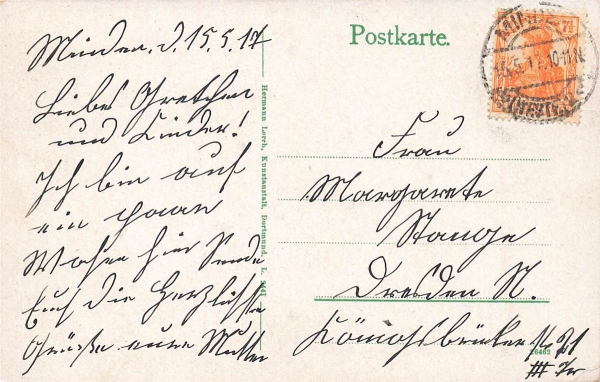 Minden, d. 15.5.17
Liebes Gretchen
und Kinder!
Ich bin auf
ein paar
Wochen hier Sende
Euch die Herzlichste
Grüße eure Mutter
Hermann Lorch, Kunstanstalt, Dortmund. L. 2441
Postkarte.
Frau
Margarete
Stange
Dresden N.
Königsbrücker 21
III
26462